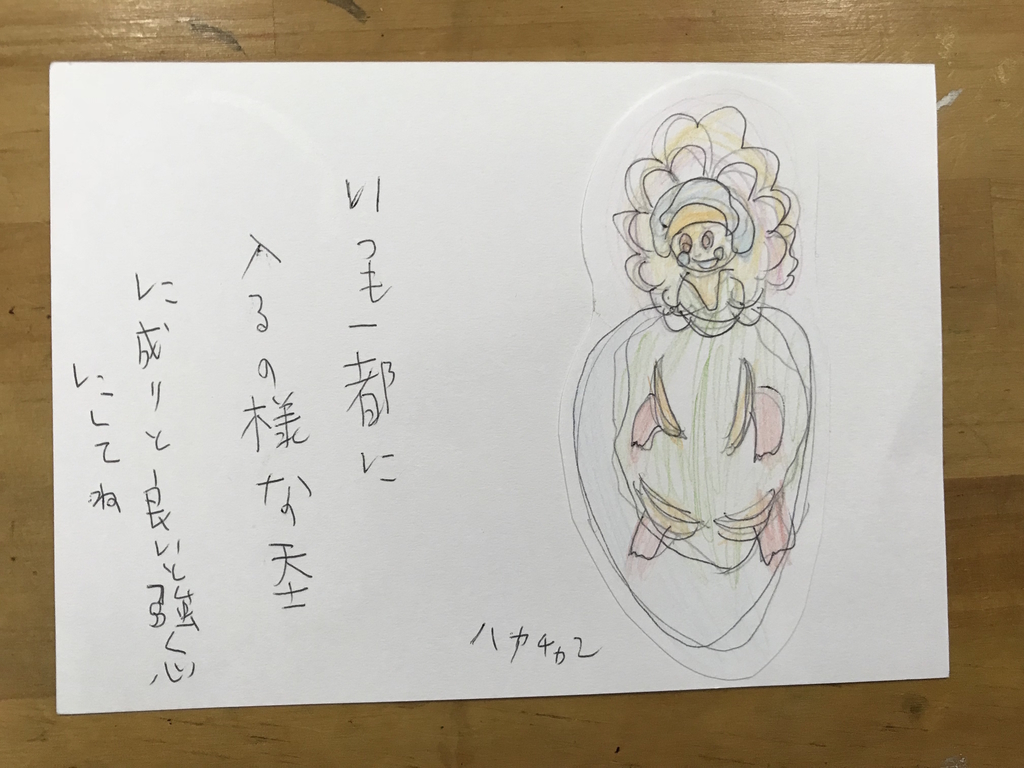 いつも一都に
入るの様な天士
に成りと良いと強く心
にしてね
ハカチカ